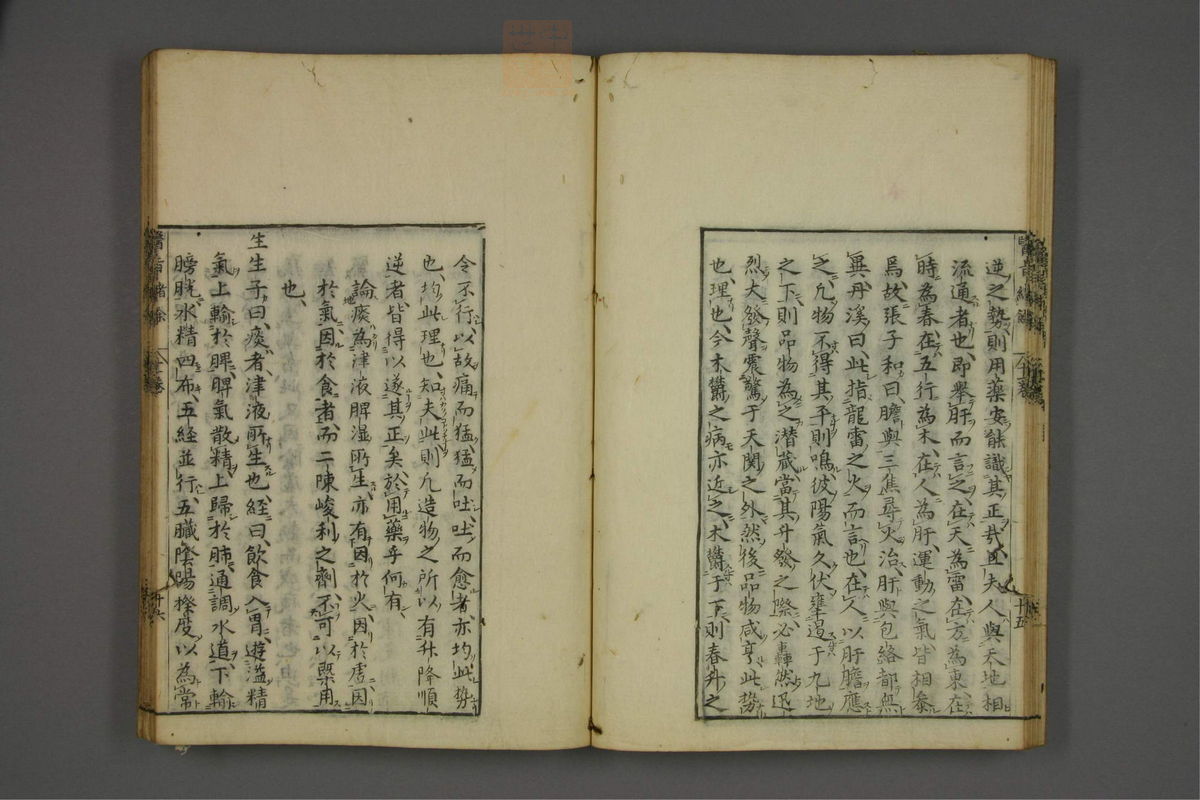 逆之勢則用藥安能識其正哉且夫人與天地相
流通者也即舉肝而言之在天為雷在方為東在
時為春在五行為木在人為肝運動之氣皆相參
焉故張子和曰膽與三焦尋火治肝與包絡都無
異丹溪曰此指龍雷之火而言也在人以肝膽應
之凡物不得其平則鳴彼陽氣久伏壅遏于九地
之下則品物為之潛藏當其升發之際必轟然迅
烈大發聲震驚于天關之外然後品物咸亨此勢
也理也今木欝之病亦近之木欝于下則春升之
令不行以故痛而猛猛而吐吐而愈者亦均此勢
也均此理也知夫此則凡造物之所以有升降順
逆者皆得以遂其正矣於用藥乎何有
論痰為津液脾湿所生亦有因於火因於虛因
於氣因於食者而二陳峻利之劑不可以槩用
也
生生子曰痰者津液所生也經曰飲食入胃遊溢精
氣上輸於脾脾氣散精上歸於肺通調水道下輸
膀胱水精四布五経並行五臟陰陽揆度以為常